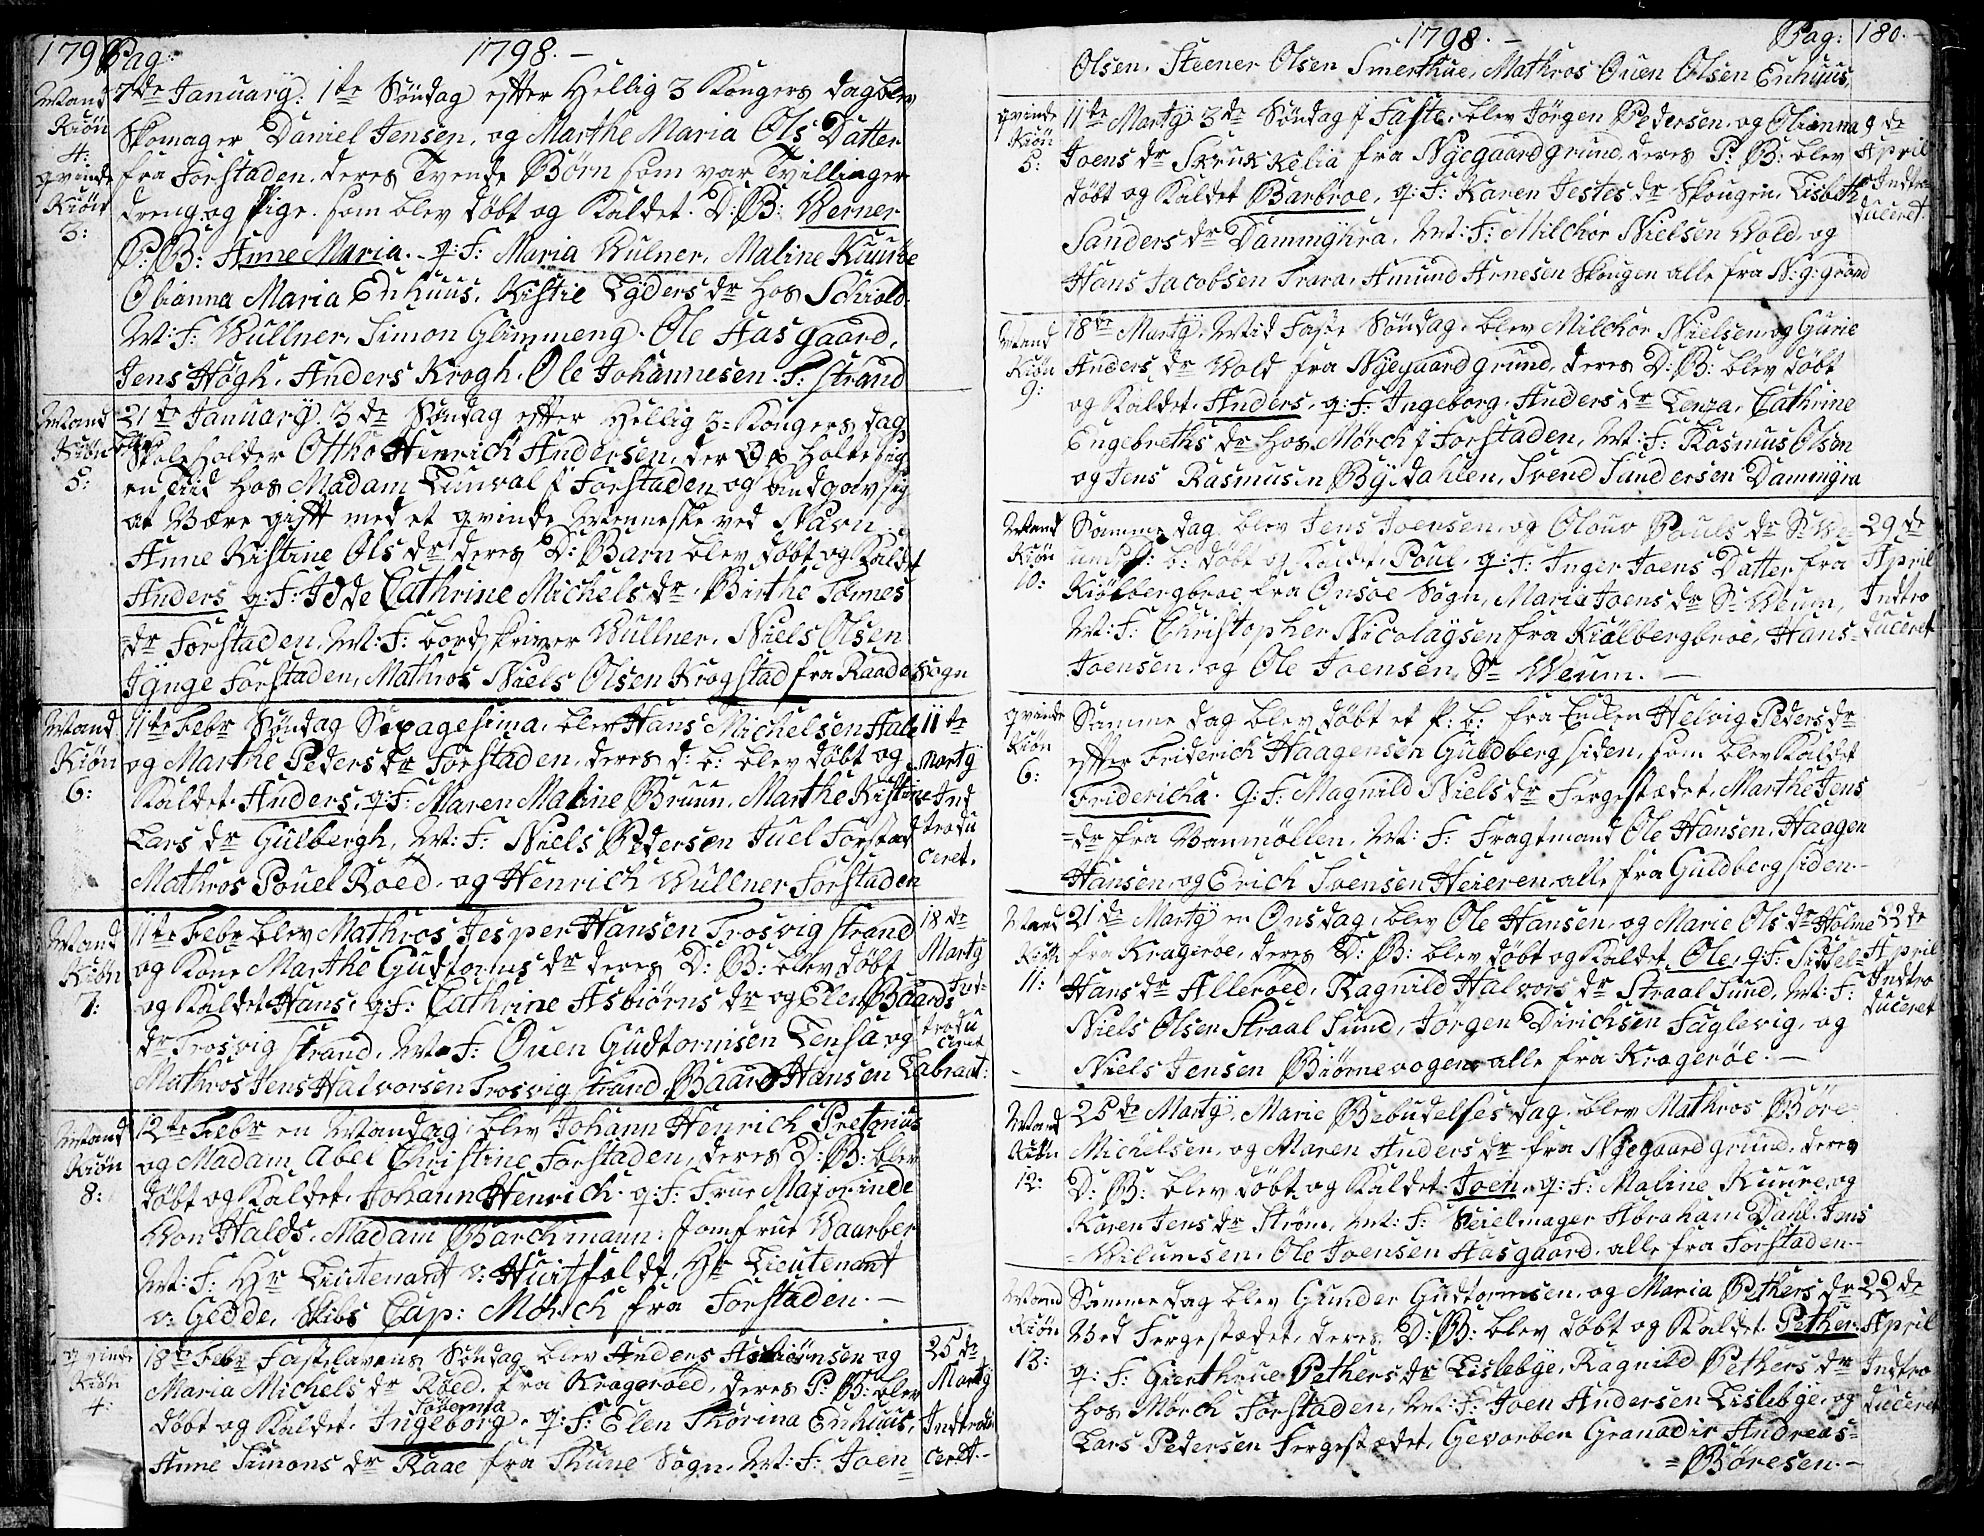 179 Pag: 1798. –
Mand Kiøn 4: qvinde Kiøn 3:
7de January: 1te Søndag efter Hellig 3 Kongers dag blev
Skomager Daniel Jensen, og Marthe Maria Ols Datter
fra Forstaden, deres Tvende Børn som var Tvillinger
dreng og Pige. som blev døbt og Kaldet. D: B: Werner
P: B: Anne Maria. q: F: Maria Wulner, Maline Kuure
Olianna Maria Enhuus, Kistie Tyders dr hos Schiold
M: F: Wullner, Simon Glimmeng. Ole Aasgaard,
Jens Høgh, Anders Krogh. Ole Johannesen. F: Strand
Mand Kiøn 5:
21te January. 3de Søndag efter Hellig 3-Kongers dag
blev Skoleholder Ottho Henrich Andersen, der holte sig
en tiid hos Madam Tunval i Forstaden og andgav sig
at Være gift med et qvinde Menneske ved Navn
Anne Kistine Ols dr, deres D: Barn blev døbt og Kaldet
Anders q: F: Idde Cathrine Michels dr. Birthe Tønnes
=dr Forstaden. M: F: bordskriver Wullner, Niels Olsen
Iynge Forstaden, Mathros Niels Olsen Krogstad fra Raade Sogn
Mand Kiøn 6:
11te Febr Søndag Sexagesima, blev Hans Michelsen Hale
og Marthe Peders dr Forstaden, deres d: b: blev døbt og
Kaldet. Anders, q: F: Maren Maline Bruun, Marthe Kistine
Lars dr Gulbergh, M: F: Niels Pedersen Juel Forstad
Mathros Pouel Roed, og Henrich Wullner Forstaden
11te Marty Indtroduceret.
Mand Kiøn 7:
11te Febr blev Mathros Jesper Hansen Trosvig strand
og Kone Marthe Gudtorms dr deres D: B: blev døbt
og Kaldet Hans, q: F: Cathrine Asbiørns dr og Elen Baards
dr Trosvig strand, M: F: Ouen Gudtormsen Tensa og
Mathros Jens Halvorsen Trosvig strand Baard Hansen Labraut:
18de Marty Indtroduceret
Mand Kiøn 8:
12te Febr en Mandag blev Johann Henrich Pretorius
og Madam Abel Christine Forstaden, deres D: B: blev
døbt og Kaldet. Johann Henrich. q: F: Frue Majorinde
Von Halds. Madam Barchmann: Jomfrue Waarber
M: F: Hr Lieutenant v: Huitfeldt, Hr Lieutenant
v: Gedde, Skibs Cap: Mörch fra Forstaden. –
qvinde Kiøn 4:
18de Febr Fastelavens Søndag blev Anders Asbiørnsen og
Maria Michels dr Roed, fra Kragerøed, deres P: B: blev
døbt og Kaldet. Ingeborg. q: F: Elen Thorina Enhuus,
Anne Simons dr Raae fra Thune Sogn. M: F: Joen=
25de Marty Indtroduceret. –
1798. – Pag: 180. –
Olsen. Steener Olsen Smerthue, Mathros Ouen Olsen Enhuus
qvinde Kiøn 5:
11te Marty 3de Søndag i Faste, blev Jørgen Pedersen, og Olianna
Joens dr Skrukkelia fra Nyegaardgrund, deres P: B: blev
døbt og Kaldet Barbroe, q: F: Karen Jestes dr Skougen, Lisbeth
Sanders dr Daminghra, M: F: Milchor Nielsen Wold, og
Hans Jacobsen Trara, Amund Arnesen Skougen alle fra N: g: grund
9de April Indtroduceret.
Mand Kiøn 9:
18de Marty. Mid Faste Søndag, blev Milchor Nielsen og Gurie
Anders dr Wold fra Nyegaardgrund, deres D: B: blev døbt
og Kaldet. Anders, q: F: Ingeborg. Anders dr Tenza, Cathrine
Engebreths dr hos Mörch i Forstaden, M: F: Rasmus Olsen
og Jens Rasmusen Bydahlen, Svend Sundersen Damingra
Mand Kiøn 10:
Samme dag blev Jens Joensen, og Olouv Poues dr Sr
d: b: døbt og Kaldet. Poul, q: F: Inger Joens Datter fra
Kiölbergbroe fra Onsøe Sogn, Maria Joens dr Sr Weum,
M: F: Christopher Nicolaysen fra Kiölbergbroe, Hans=
Joensen, og Ole Joensen, Sr Weum. –
29de April Indtroduceret
qvinde Kiøn 6:
Samme dag blev døbt et P: b: fra Enken Helvig Peders dr
efter Friderich Haagensen Guldbergsiden, som blev Kaldet
Fridericha. q: F: Magnild Niels dr Fergestædet, Marthe Jens
=dr fra Vanmøllen. M: F: Fragtmand Ole Hansen, Haagen
Hansen, og Erich Svensen Heieren, alle fra Guldbergsiden. –
Mand Kiøn 11:
21de Marty en Onsdag, blev Ole Hansen, og Marie Ols dr Holme
fra Kragerøe, deres D: B: blev døbt og Kaldet Ole, q: F: Sidsel=
Hans dr Allerøed, Ragnild Halvors dr Straalsund, M: F:
Niels Olsen Straalsund, Jørgen Dirichsen Fuglevig, og
Niels Jensen Biørnevogen, alle fra Kragerøe. –
22de April Indtroduceret
Mand Kiøn 12:
25de Marty, Marie Bebudelses dag, blev Mathros Børe
Michelsen, og Maren Anders dr fra Nyegaardgrund, deres
D: B: blev døbt og Kaldet: Joen, q: F: Maline Kuure, og
Karen Jens dr Strøm, M: F: Seielmager Abraham Daul. Jens
=Wilumsen, Ole Joensen Aasgaard, alle fra Forstaden. –
Mand Kiøn 13:
Samme dag blev Gunder Gudtormsen, og Maria Pethers dr
Ved Fergestædet, deres D: B: blev døbt og Kaldet Pether.
q: F: Giertrue Pethers dr Lislebye, Ragnild Pethers dr
hos Mörch Forstaden, M: F: Joen Andersen Lislebye, og
Lars Pedersen Fergestædet, Gevorben Granadir Andreas=
=Børesen. –
22de April Indtroduceret